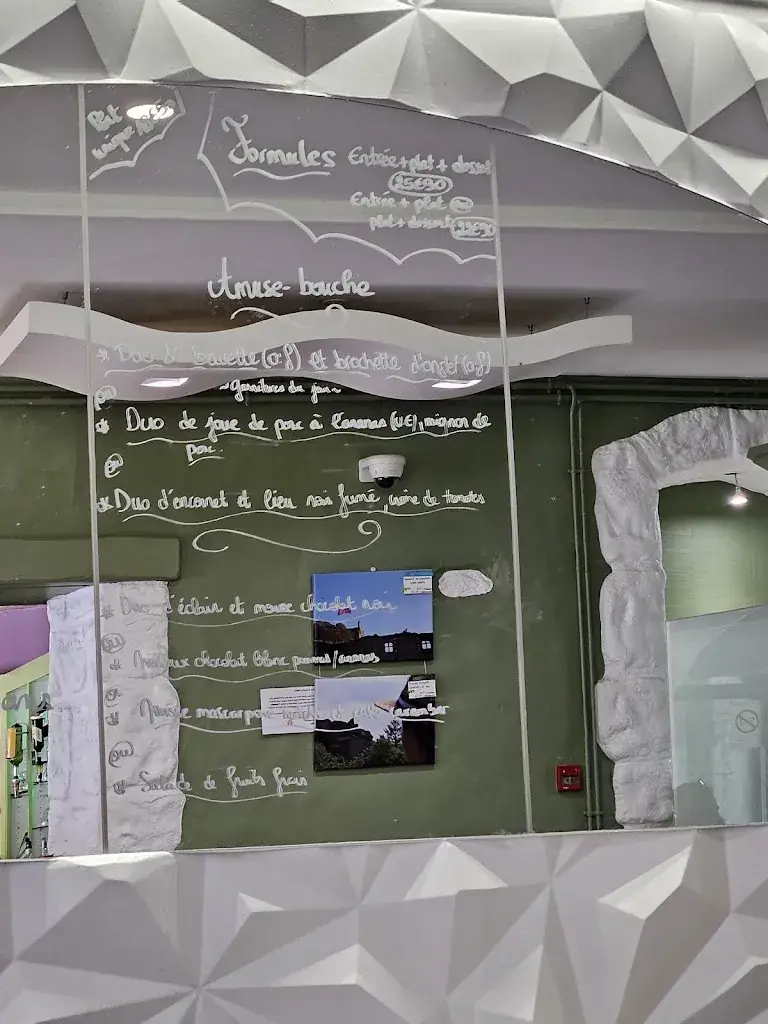 Plat
unique
Formules Entrée+plat+dessert
25€90
Entrée + plat ou
plat+dessert 22€90
Amuse-bouche
* Duo de bavette (o:f) et brochette d'onglet (o:f)
~Garnitures du jour~
ou
* Duo de joue de porc à l'ananas (UE), mignon de
porc.
ou
* Duo d'encornet et lieu noir fumé, crème de tomates
* Duo d'éclair et mousse chocolat noir
ou
* Moelleux chocolat blanc pommes/ananas
ou
* Mousse mascarpone
ou
* Salade de fruits frais